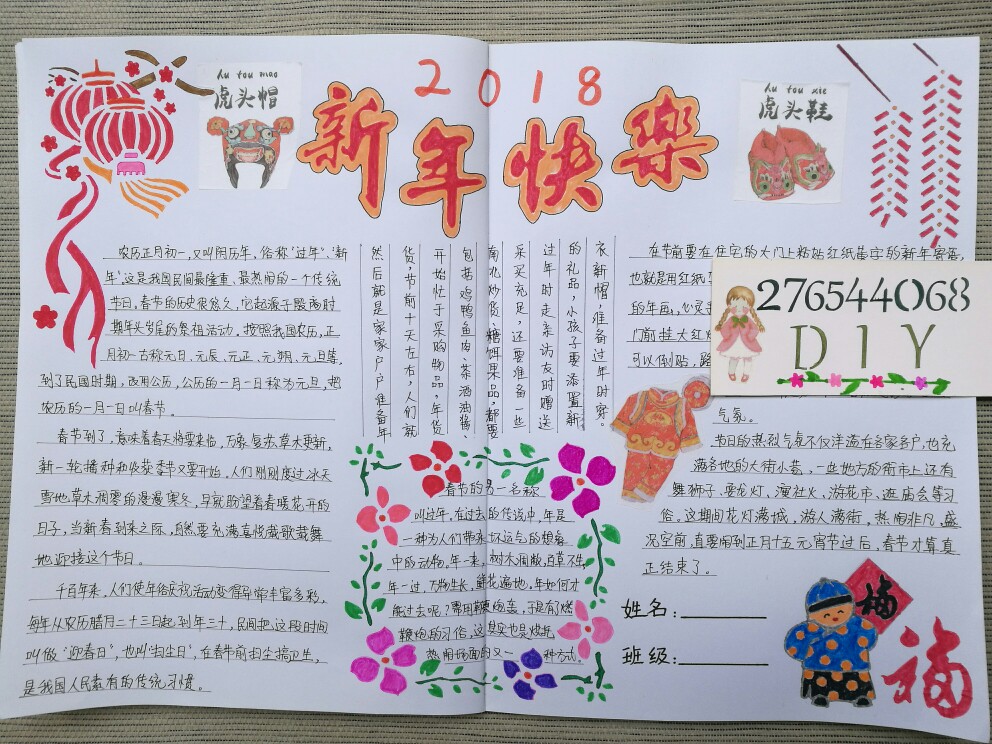 2018
hu tou mao
虎头帽
新年快樂
hu tou xie
虎头鞋
农历正月初一,又叫阴历年,俗称“过年”、“新
年”。这是我国民间最隆重、最热闹的一个传统
节日。春节的历史很悠久,它起源于殷商时
期年头岁尾的祭祖活动。按照我国农历,正
月初一古称元日、元辰、元正、元朔、元旦等,
到了民国时期,改用公历,公历的一月一日称为元旦,把
农历的一月一日叫春节。
春节到了,意味着春天将要来临,万象复苏草木更新,
新一轮播种和收获季节又要开始。人们刚刚度过冰天
雪地草木凋零的漫漫寒冬,早就盼望着春暖花开的
日子,当新春到来之际,自然要充满喜悦载歌载舞
地迎接这个节日。
千百年来,人们使年俗庆祝活动变得异常丰富多彩,
每年从农历腊月二十三日起到年三十,民间把这段时间
叫做“迎春日”,也叫“扫尘日”,在春节前扫尘搞卫生,
是我国人民素有的传统习惯。
然后就是家家户户准备年
货,节前十天左右,人们就
开始忙于采购物品,年货
包括鸡鸭鱼肉、茶酒油酱、
南北炒货、糖饵果品,都要
采买充足,还要准备一些
过年时走亲访友时赠送
的礼品,小孩子要添置新
衣新帽,准备过年时穿。
春节的另一名称
叫过年,在过去的传说中,年是
一种为人们带来坏运气的想象
中的动物。年一来,树木凋敝,百草不生,
年一过,万物生长,鲜花遍地。年如何才
能过去呢?需用鞭炮轰,于是有了燃
鞭炮的习俗,这其实也是烘托
热闹场面的又一种方式。
在节前要在住宅的大门上粘贴红纸黄字的新年寄语,
也就是用红纸
的年画,心灵手
门前挂大红灯
可以倒贴,路
气氛。
节日的热烈气氛不仅洋溢在各家各户,也充
满各地的大街小巷,一些地方的街市上还有
舞狮子、耍龙灯、演社火、游花市、逛庙会等习
俗。这期间花灯满城,游人满街,热闹非凡,盛
况空前,直要闹到正月十五元宵节过后,春节才算真
正结束了。
276544068
DIY
姓名:
班级:
福
福